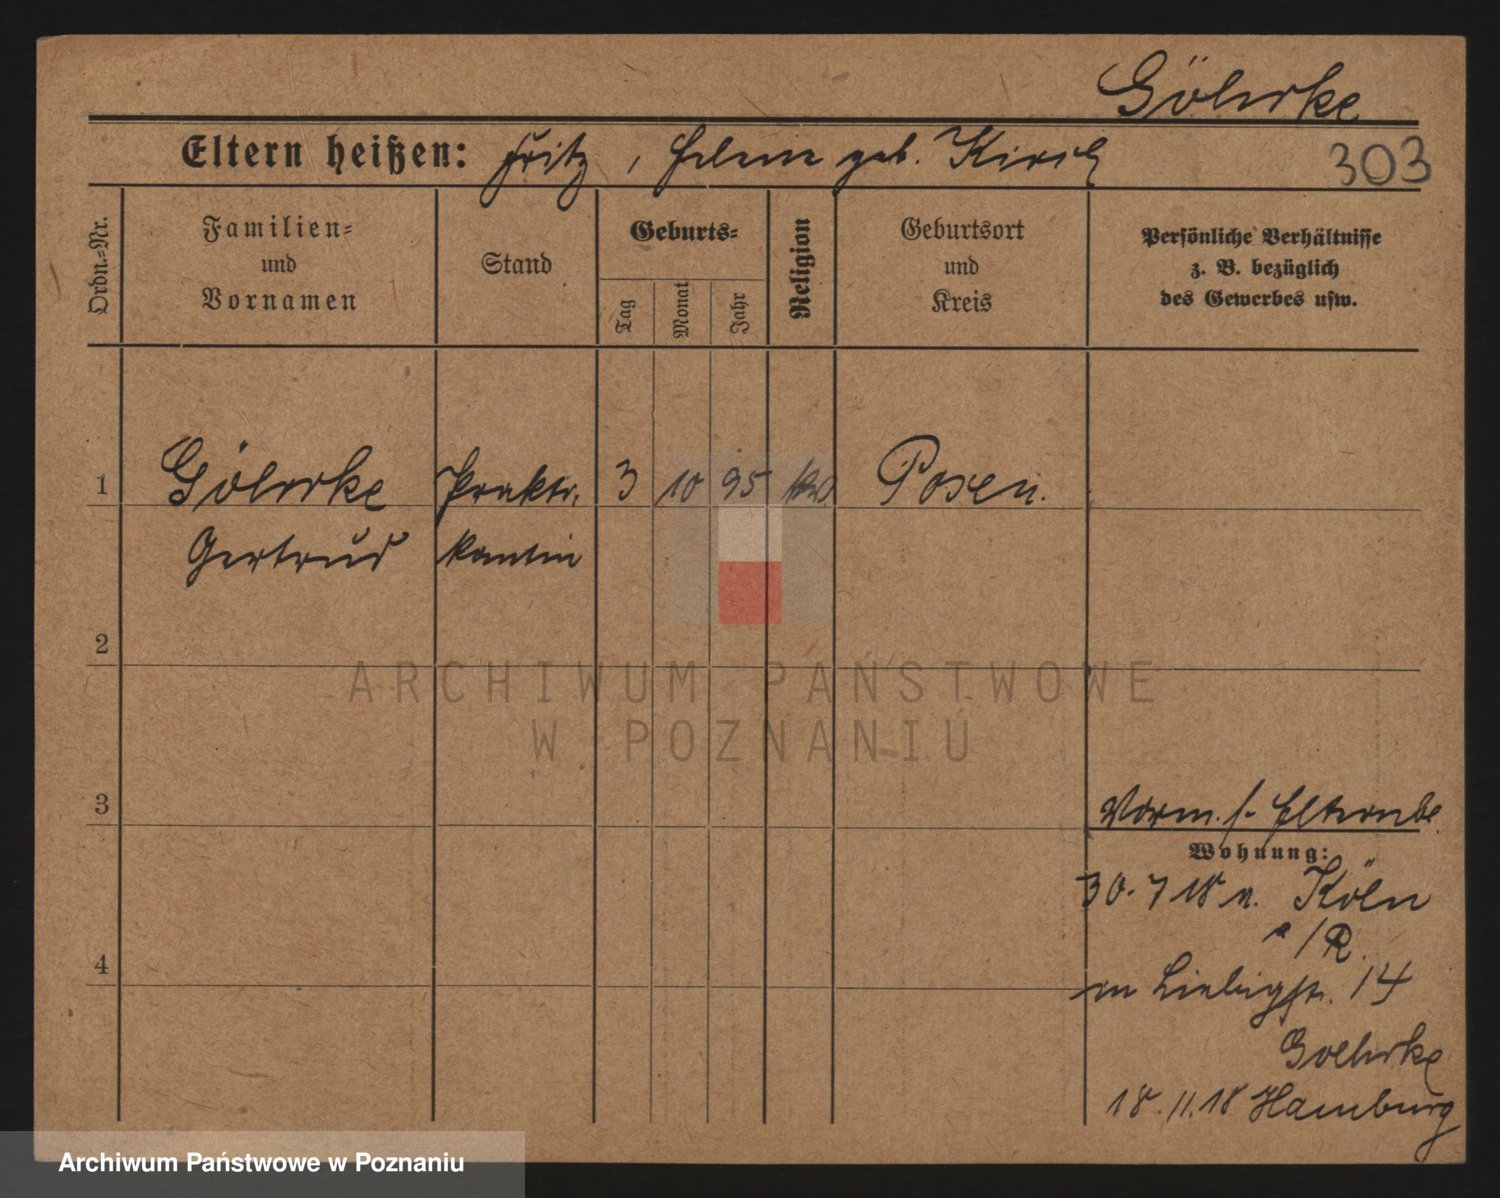 Göhrke
Eltern heißen: Fritz, Helene geb. Kirsch
303
Ordn.-Nr.
Familien-
und
Vornamen
Stand
Geburts-
Tag
Monat
Jahr
Religion
Geburtsort
und
Kreis
Persönliche Verhältnisse
z. B. bezüglich
des Gewerbes usw.
1 Göhrke Prakti- 3 10 95 Posen.
Gertrud kantin
2
ARCHIWUM PAŃSTWOWE
W POZNANIU
3
Vorm. s. Elternbl.
Wohnung:
30.7 18 n. Köln
a/R.
4
Liebigstr. 14
Goehrke
18.11.18 Hamburg
Archiwum Państwowe w Poznaniu